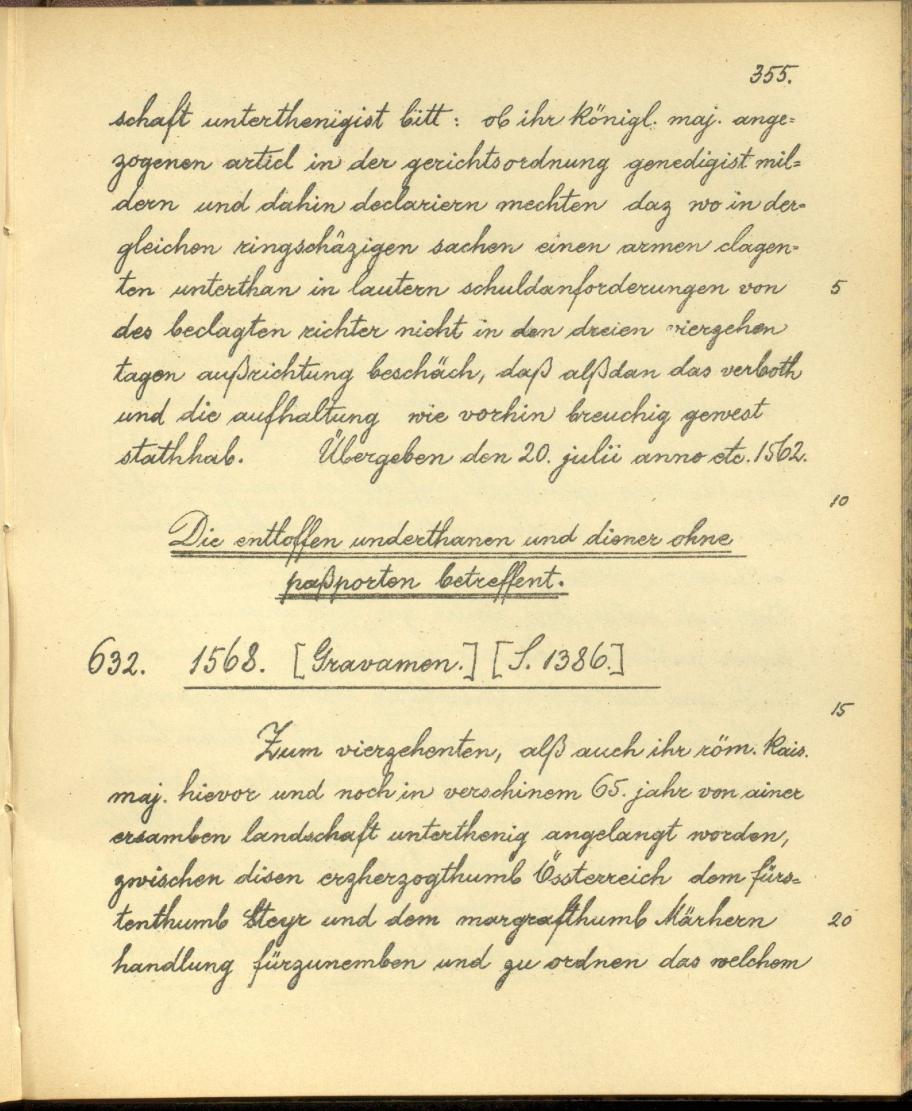 355.
schaft unterthenigist bitt: ob ihr königl. maj. ange=
zogenen articl in der gerichtsordnung genedigist mil=
dern und dahin declariern mechten daz wo in der=
gleichen ringschäzigen sachen einen armen clagen=
ten unterthan in lautern schuldanforderungen von 5
des beclagten richter nicht in den dreien vierzehen
tagen außrichtung beschäch, daß alßdan das verboth
und die aufhaltung wie vorhin breuchig gewest
stathhab. Übergeben den 20. julii anno etc. 1562.
10
Die entloffen underthanen und diener ohne
paßporten betreffent.
632. 1568. [Gravamen.] [S. 1386.]
15
Zum vierzehenten, alß auch ihr röm. kais.
maj. hievor und noch in verschinem 65. jahr von ainer
ersamben landschaft unterthenig angelangt worden,
zwischen disen erzherzogthumb Össterreich dem fürs=
tenthumb Steyr und dem margrafthumb Märhern 20
handlung fürzunemben und zu ordnen das welchem